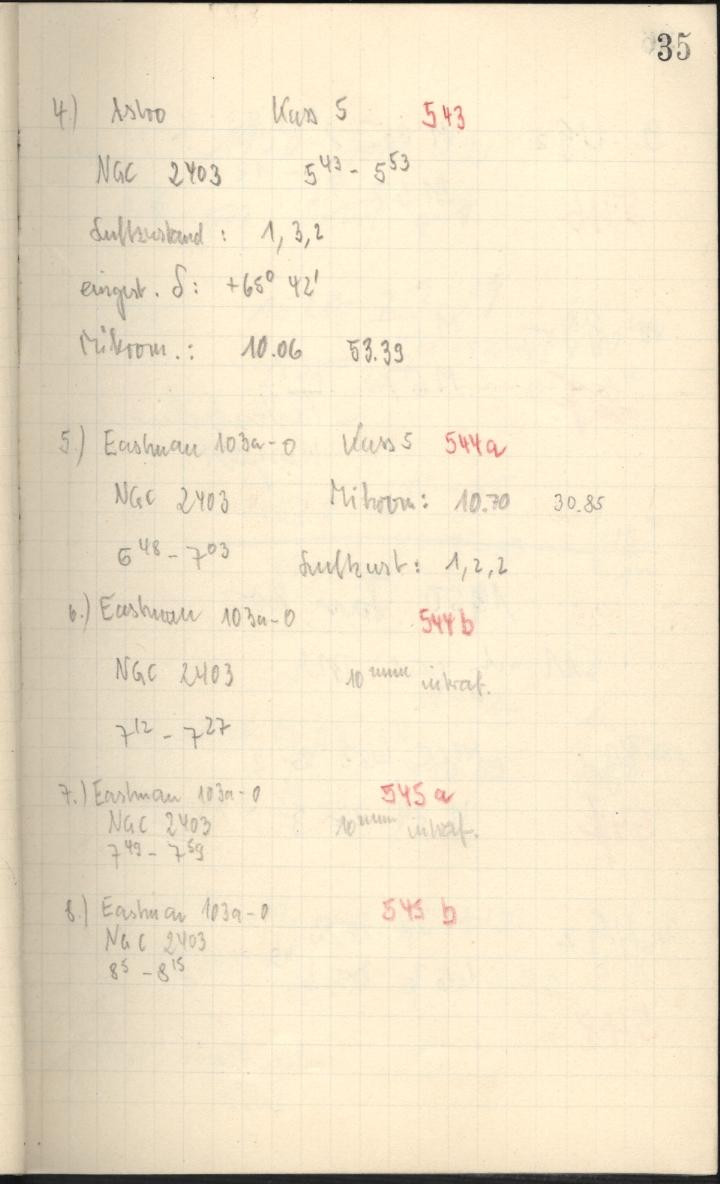 35
4) Astro Kass 5 543
NGC 2403 5⁴³ - 5⁵³
Luftzustand : 1, 3, 2
eingest. δ : +65° 42'
Mikrom. : 10.06 53.39
5.) Eastman 103a-O Kass 5 544a
NGC 2403 Mikrom : 10.70 30.85
6⁴⁸ - 7⁰³ Luftzust : 1, 2, 2
6.) Eastman 103a-O 544b
NGC 2403 10ᵐᵐ intraf.
7¹² - 7²⁷
7.) Eastman 103a-O 545a
NGC 2403 10ᵐᵐ intraf.
7⁴⁹ - 7⁵⁹
8.) Eastman 103a-O 545 b
NGC 2403
8⁵ - 8¹⁵